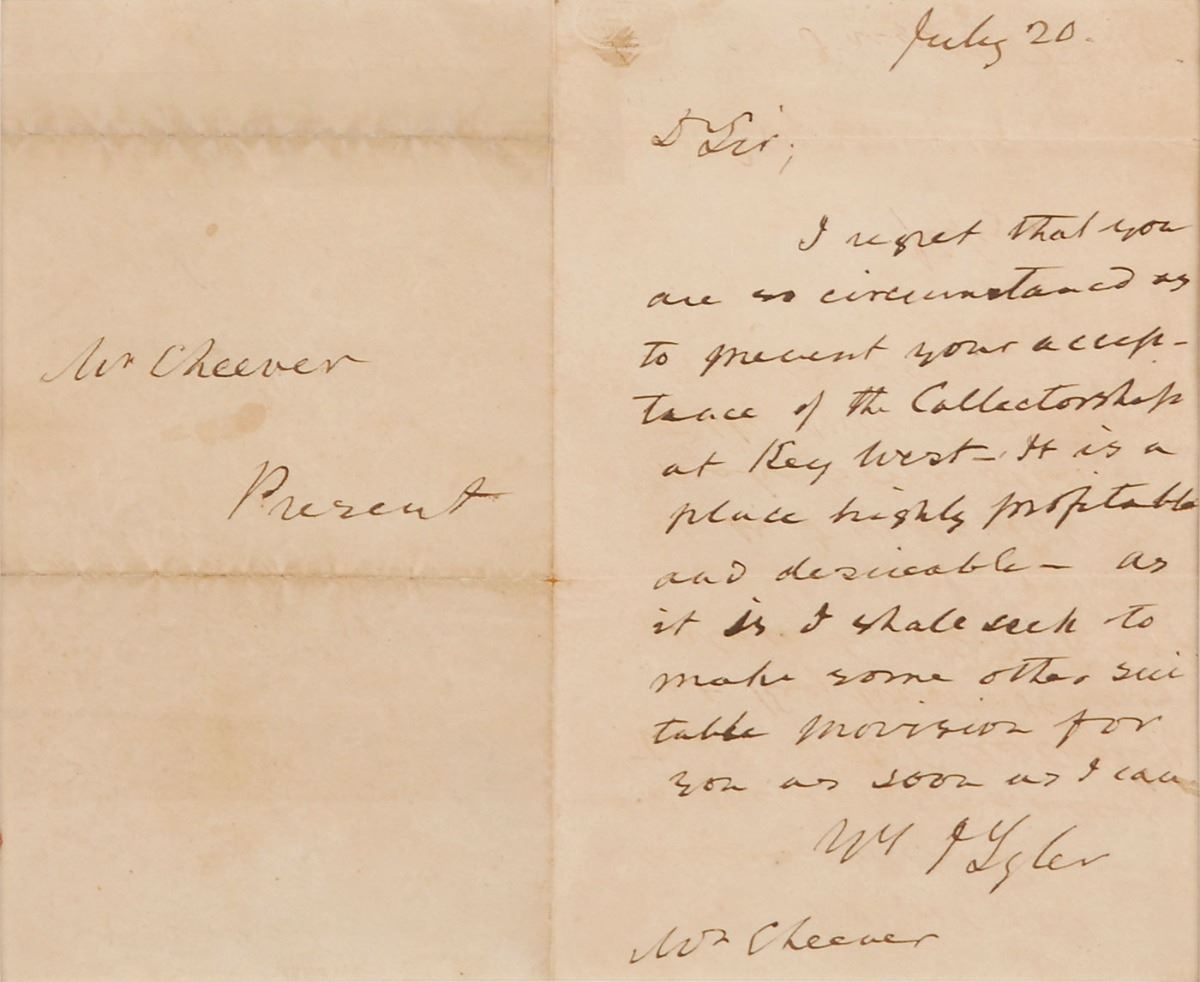 Mr Cheever
Present
July 20.
Dr Sir,
I regret that you
are so circumstanced as
to prevent your accep-
tance of the Collectorship
at Key West - It is a
place highly profitable
and desireable - as
it is I shall seek to
make some other sui
table provision for
you as soon as I can
Yrs J Tyler
Mr Cheever